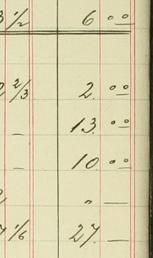 3 1/2 6 00
2 2/3 2. 00
– 13. 00
– 10 00
" —
7 1/6 27. —